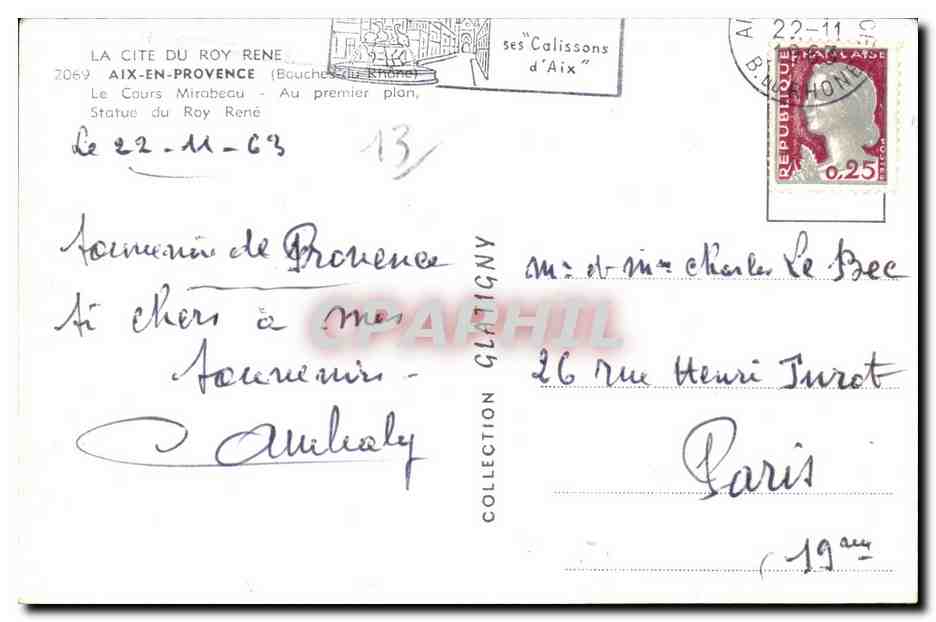 LA CITE DU ROY RENE
2069 AIX-EN-PROVENCE (Bouches du Rhône)
Le Cours Mirabeau - Au premier plan,
Statue du Roy René
ses "Calissons
d'Aix"
22-11
B. DU RHONE
REPUBLIQUE FRANÇAISE
POSTES
0,25
Le 22-11-63
13
Souvenir de Provence
si chers à mes
souvenirs -
COLLECTION GLATIGNY
CPARHIL
Mr et Mme Charles Le Bec
26 rue Henri Turot
Paris
19em